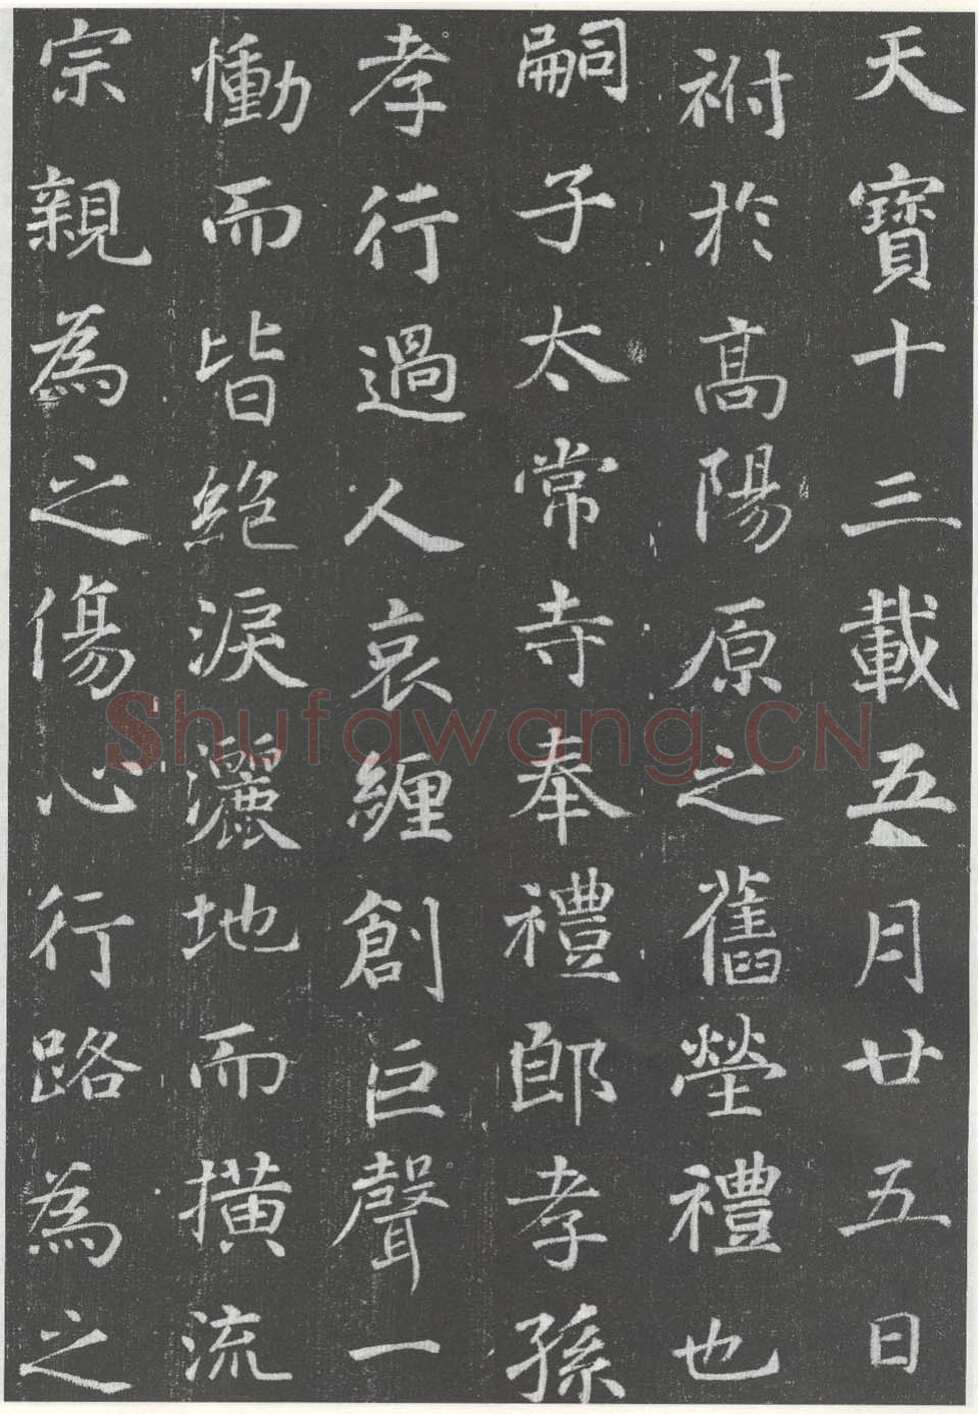 天寶十三載五月廿五日
祔於高陽原之舊塋禮也
嗣子太常寺奉禮郎孝孫
孝行過人哀纏創巨聲一
慟而皆絕淚灑地而橫流
宗親為之傷心行路為之
Shufawang.CN